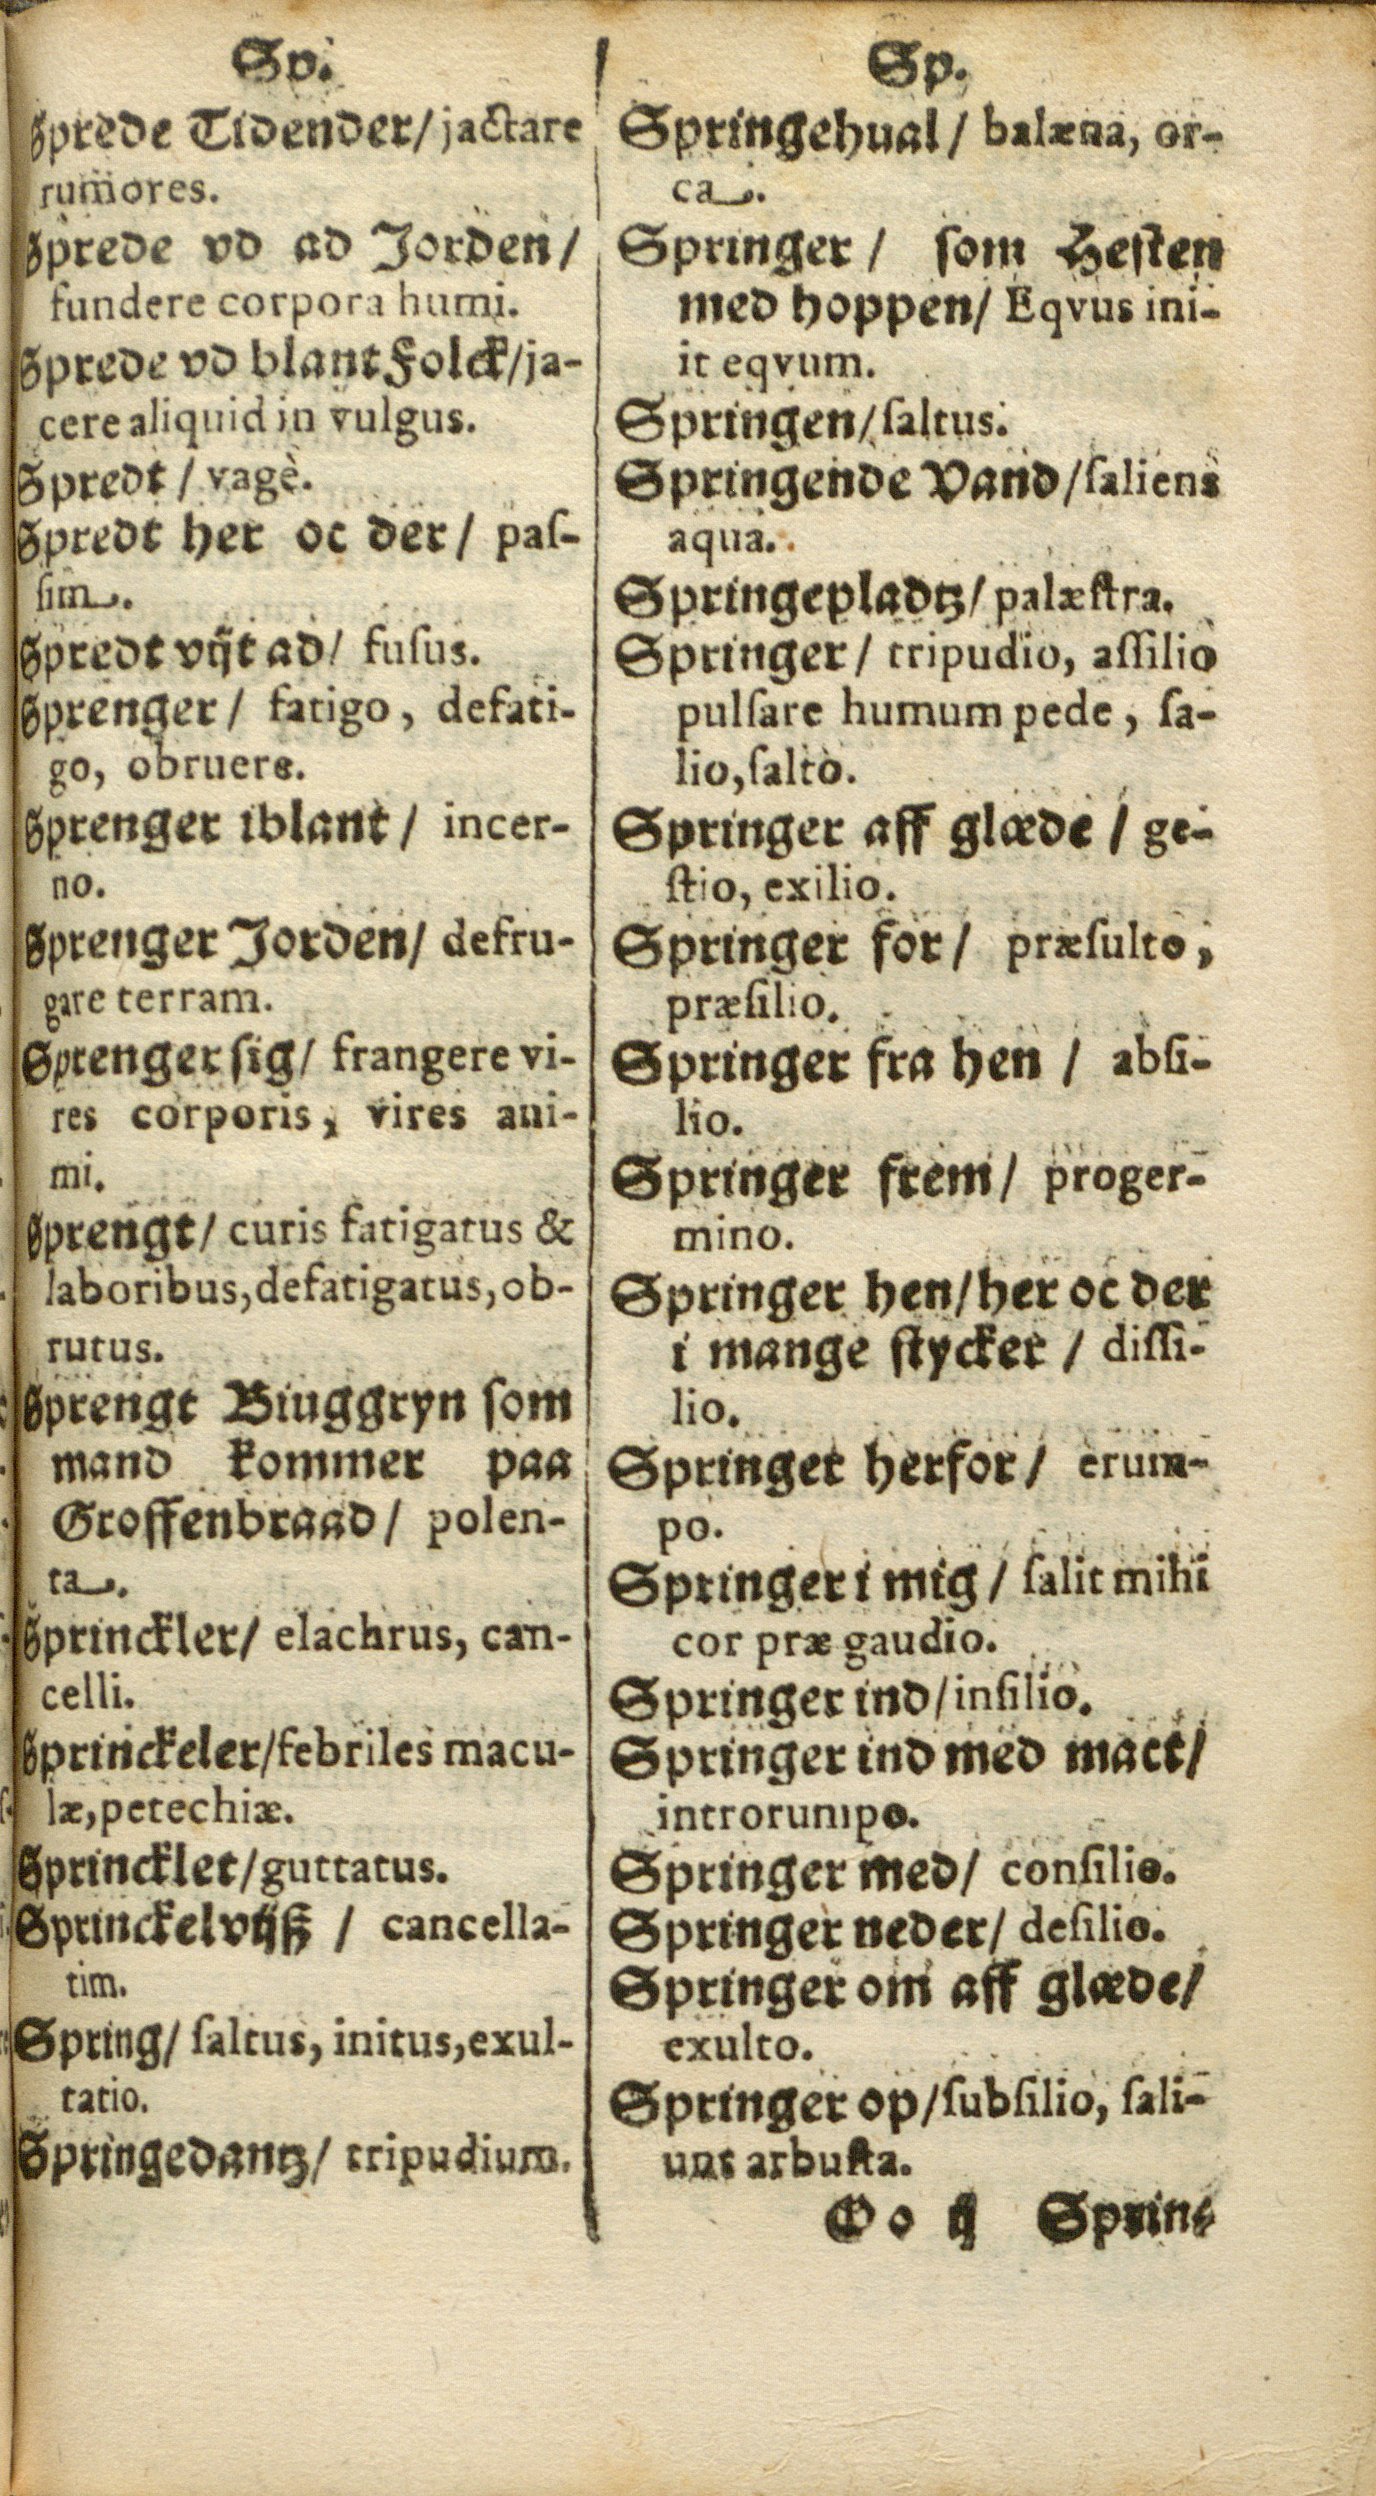 Sp.
Sprede Tidender/ jactare
rumores.
Sprede vd ad Jorden/
fundere corpora humi.
Sprede vd blant Folck/ja-
cere aliquid in vulgus.
Spredt / vagè.
Spredt her oc der/ paſ-
ſim.
Spredt vijt ad/ fuſus.
Sprenger/ fatigo, defati-
go, obruere.
Sprenger iblant/ incer-
no.
Sprenger Jorden/ defru-
gare terram.
Sprenger ſig/ frangere vi-
res corporis, vires ani-
mi.
Sprengt/ curis fatigatus &
laboribus, defatigatus, ob-
rutus.
Sprengt Biuggryn ſom
mand kommer paa
Groffenbraad/ polen-
ta.
Sprinckler/ elachrus, can-
celli.
Sprinckeler/febriles macu-
læ, petechiæ.
Sprincklet/guttatus.
Sprinckelvijß / cancella-
tim.
Spring/ ſaltus, initus, exul-
tatio.
Springedantz/ tripudium.
Sp.
Springehual/ balæna, or-
ca.
Springer/ ſom Heſten
med hoppen/ Eqvus ini-
it eqvum.
Springen/ſaltus.
Springende Vand/ſaliens
aqua.
Springepladtz/ palæſtra.
Springer/ tripudio, aſſilio
pulſare humum pede, ſa-
lio, ſalto.
Springer aff glæde / ge-
ſtio, exilio.
Springer for/ præſulto,
præſilio.
Springer fra hen / abſi-
lio.
Springer frem/ proger-
mino.
Springer hen/her oc der
i mange ſtycker / diſſi-
lio.
Springer herfor/ erum-
po.
Springer i mig/ ſalit mihi
cor præ gaudio.
Springer ind/inſilio.
Springer ind med mact/
introrumpo.
Springer med/ conſilio.
Springer neder/ deſilio.
Springer om aff glæde/
exulto.
Springer op/ſubſilio, ſali-
unt arbuſta.
Oo ij Sprin-